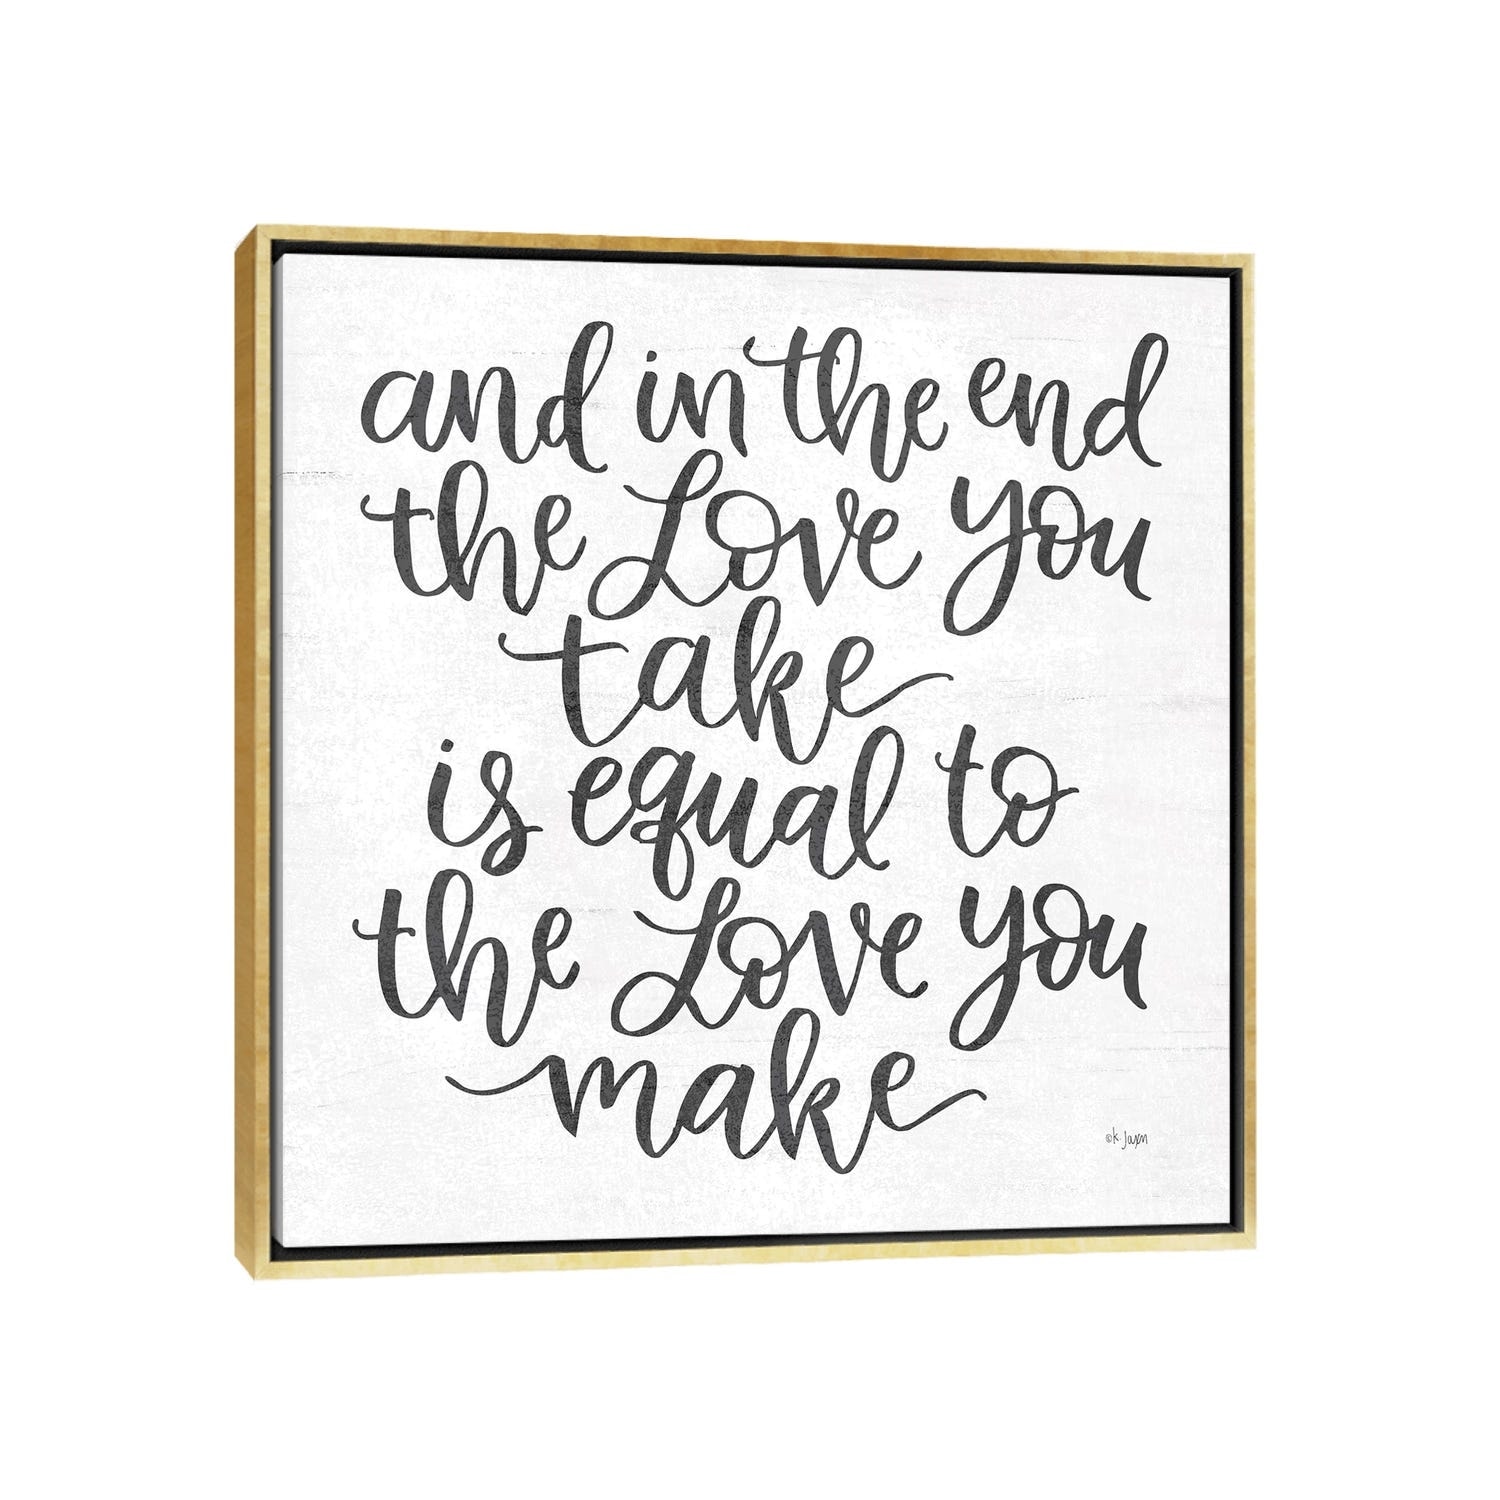 and in the end
the Love you
take
is equal to
the Love you
make
©K. Jaxn